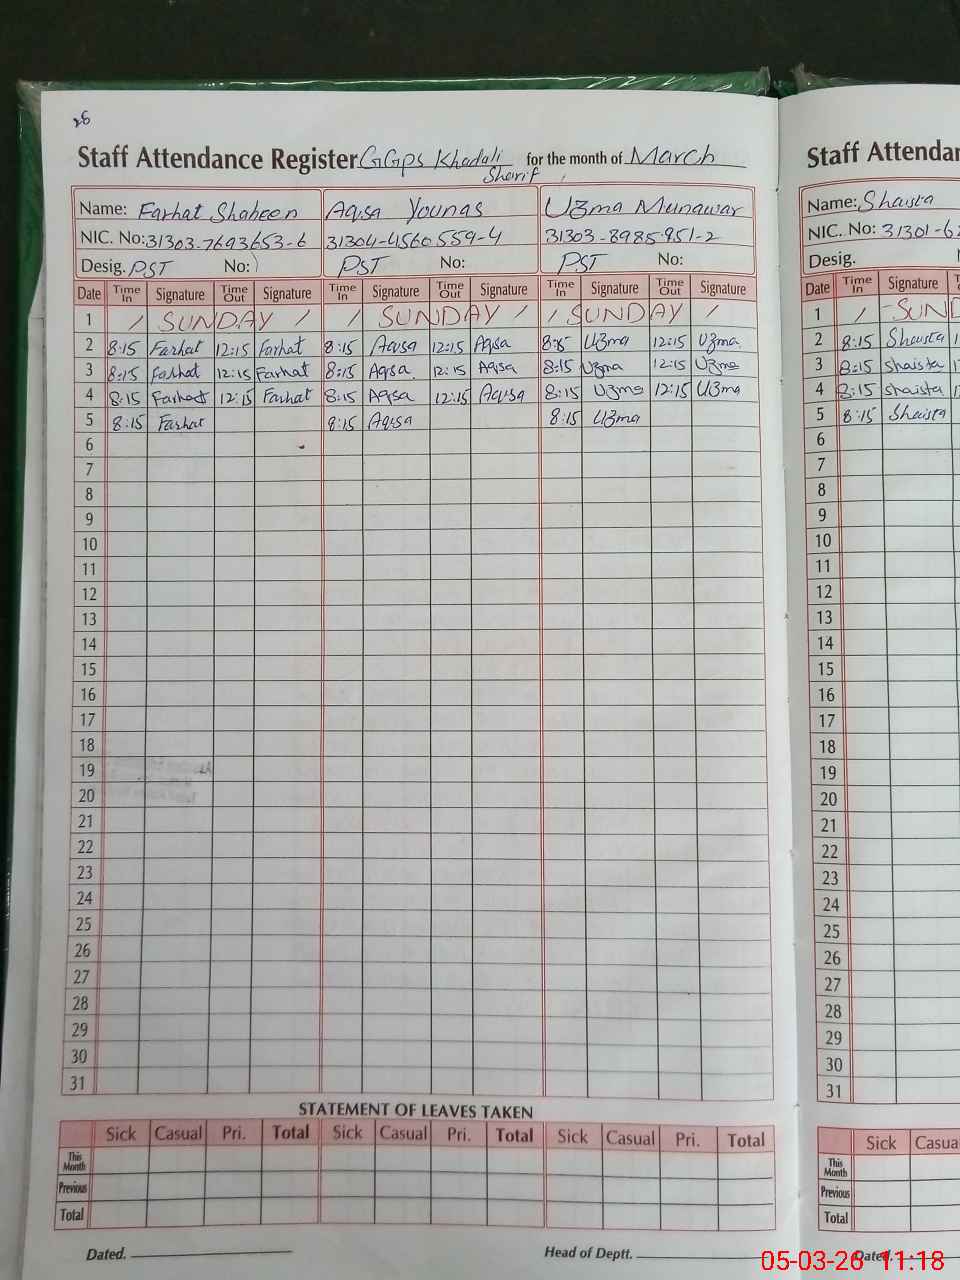 28
Staff Attendance Register GGPS Khadali Sharif for the month of March
Name: Farhat Shaheen Aqsa Younas Uzma Munawar
NIC. No: 31303-7693653-6 31304-4560559-4 31303-8985951-2
Desig. PST No: PST No: PST No:
Date Time In Signature Time Out Signature Time In Signature Time Out Signature Time In Signature Time Out Signature
1 / SUNDAY / / SUNDAY / / SUNDAY /
2 8:15 Farhat 12:15 Farhat 8:15 Aqsa 12:15 Aqsa 8:15 Uzma 12:15 Uzma
3 8:15 Farhat 12:15 Farhat 8:15 Aqsa 12:15 Aqsa 8:15 Uzma 12:15 Uzma
4 8:15 Farhat 12:15 Farhat 8:15 Aqsa 12:15 Aqsa 8:15 Uzma 12:15 Uzma
5 8:15 Farhat 8:15 Aqsa 8:15 Uzma
6
7
8
9
10
11
12
13
14
15
16
17
18
19
20
21
22
23
24
25
26
27
28
29
30
31
STATEMENT OF LEAVES TAKEN
Sick Casual Pri. Total Sick Casual Pri. Total Sick Casual Pri. Total
This Month
Previous
Total
Dated. Head of Deptt.
Staff Attendan
Name: Shaista
NIC. No: 31301-62
Desig.
Date Time In Signature
1 / SUND
2 8:15 Shaista
3 8:15 Shaista
4 8:15 Shaista
5 8:15 Shaista
6
7
8
9
10
11
12
13
14
15
16
17
18
19
20
21
22
23
24
25
26
27
28
29
30
31
Sick Casua
This Month
Previous
Total
Dated.
05-03-26 11:18